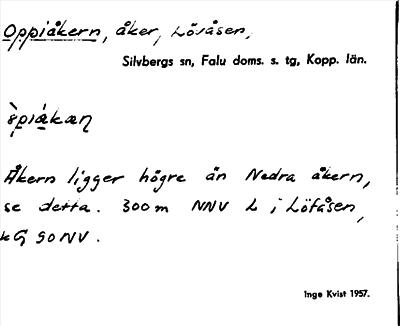 Oppiåkern, åker, Lövåsen,
Silvbergs sn, Falu doms. s. tg, Kopp. län.
Åkern ligger högre än Nedra åkern,
se detta. 300 m NNV L i Löfåsen,
kG SONV.
Inge Kvist 1957.